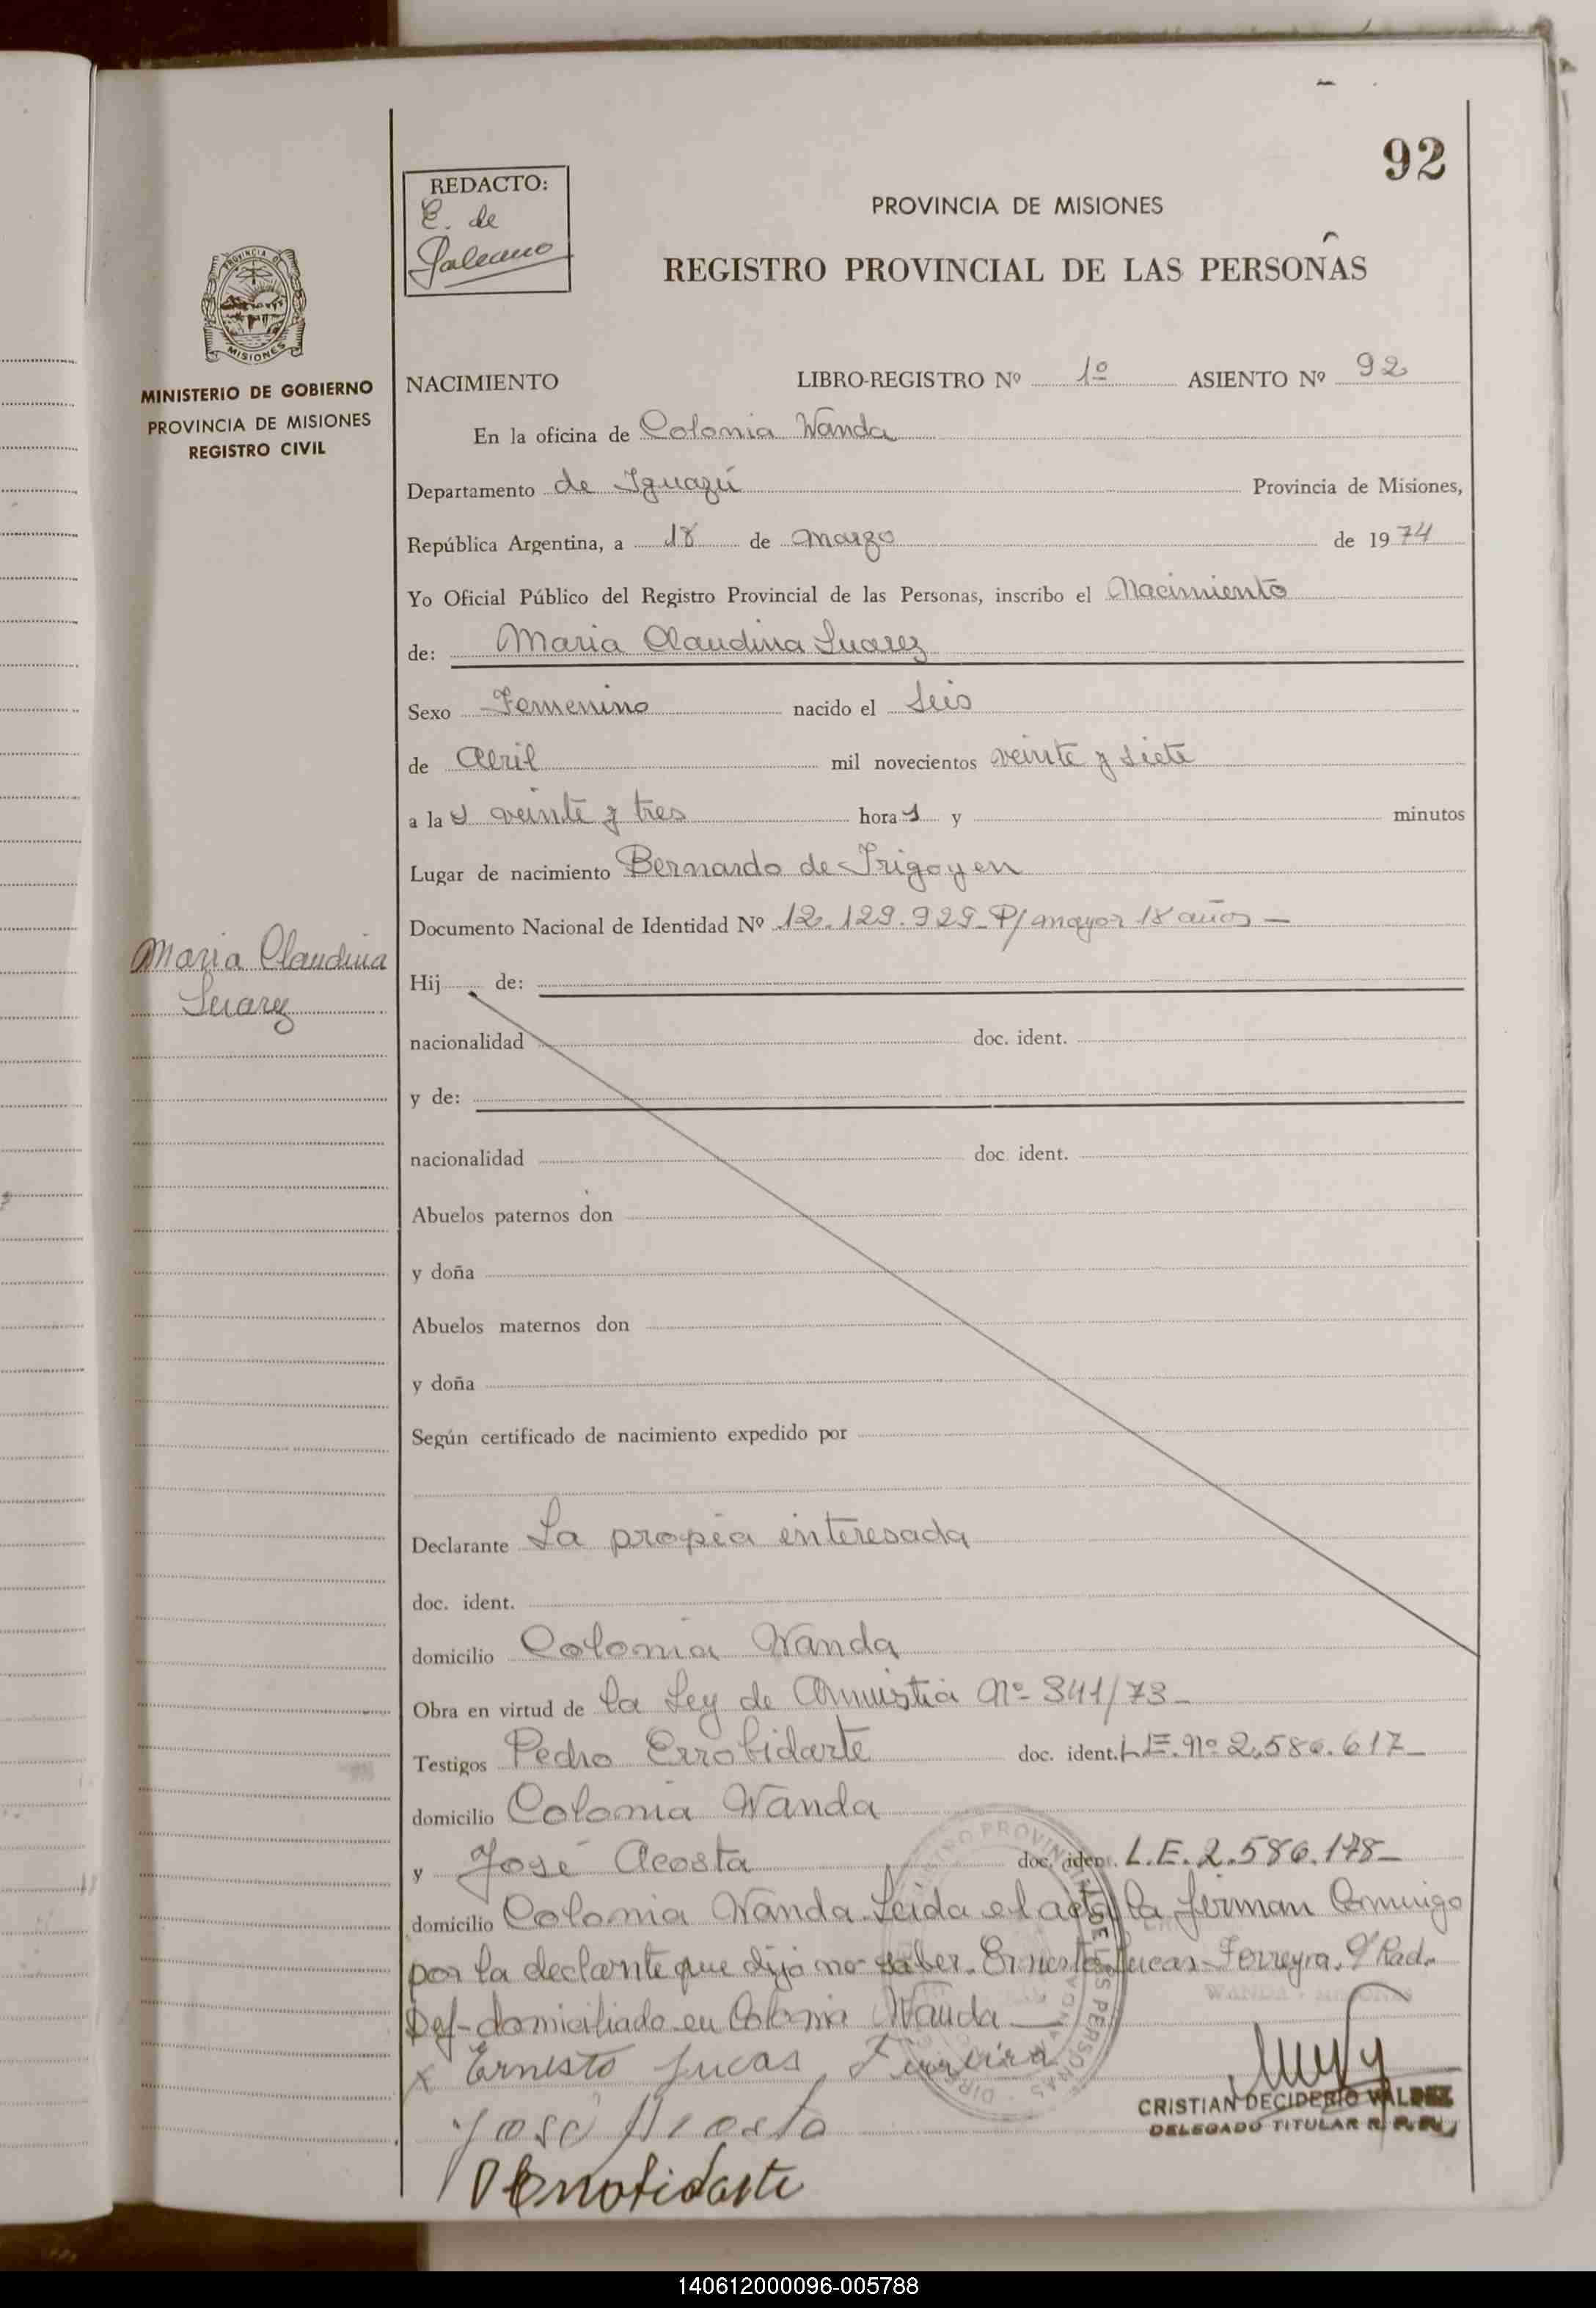 92
REDACTO:
E. de
Galeano
PROVINCIA DE MISIONES
REGISTRO PROVINCIAL DE LAS PERSONAS
PROVINCIA DE
MISIONES
MINISTERIO DE GOBIERNO
PROVINCIA DE MISIONES
REGISTRO CIVIL
NACIMIENTO LIBRO-REGISTRO Nº 1º ASIENTO Nº 92
En la oficina de Colonia Wanda
Departamento de Iguazú Provincia de Misiones,
República Argentina, a 18 de Marzo de 1974
Yo Oficial Público del Registro Provincial de las Personas, inscribo el Nacimiento
de: Maria Claudina Suarez
Sexo Femenino nacido el Seis
de Abril mil novecientos veinte y siete
a la s veinte y tres hora s y minutos
Lugar de nacimiento Bernardo de Irigoyen
Documento Nacional de Identidad Nº 12.129.929 P/ mayor 18 años —
Maria Claudina
Suarez
Hij de:
nacionalidad doc. ident.
y de:
nacionalidad doc. ident.
Abuelos paternos don
y doña
Abuelos maternos don
y doña
Según certificado de nacimiento expedido por
Declarante La propia interesada
doc. ident.
domicilio Colonia Wanda
Obra en virtud de la Ley de Amnistia Nº 341/73-
Testigos Pedro Errobidarte doc. ident. L.E. Nº 2.586.617-
domicilio Colonia Wanda
y José Acosta doc. ident. L.E. 2.586.178-
domicilio Colonia Wanda. Leida el acta la firman Conmigo
por la declarante que dijo no saber. Ernesto Lucas Ferreyra.
domiciliado en Colonia Wanda —
x Ernesto Lucas Ferreira
José Acosta
CRISTIAN DECIDERIO VALDEZ
DELEGADO TITULAR R. P. P.
140612000096-005788